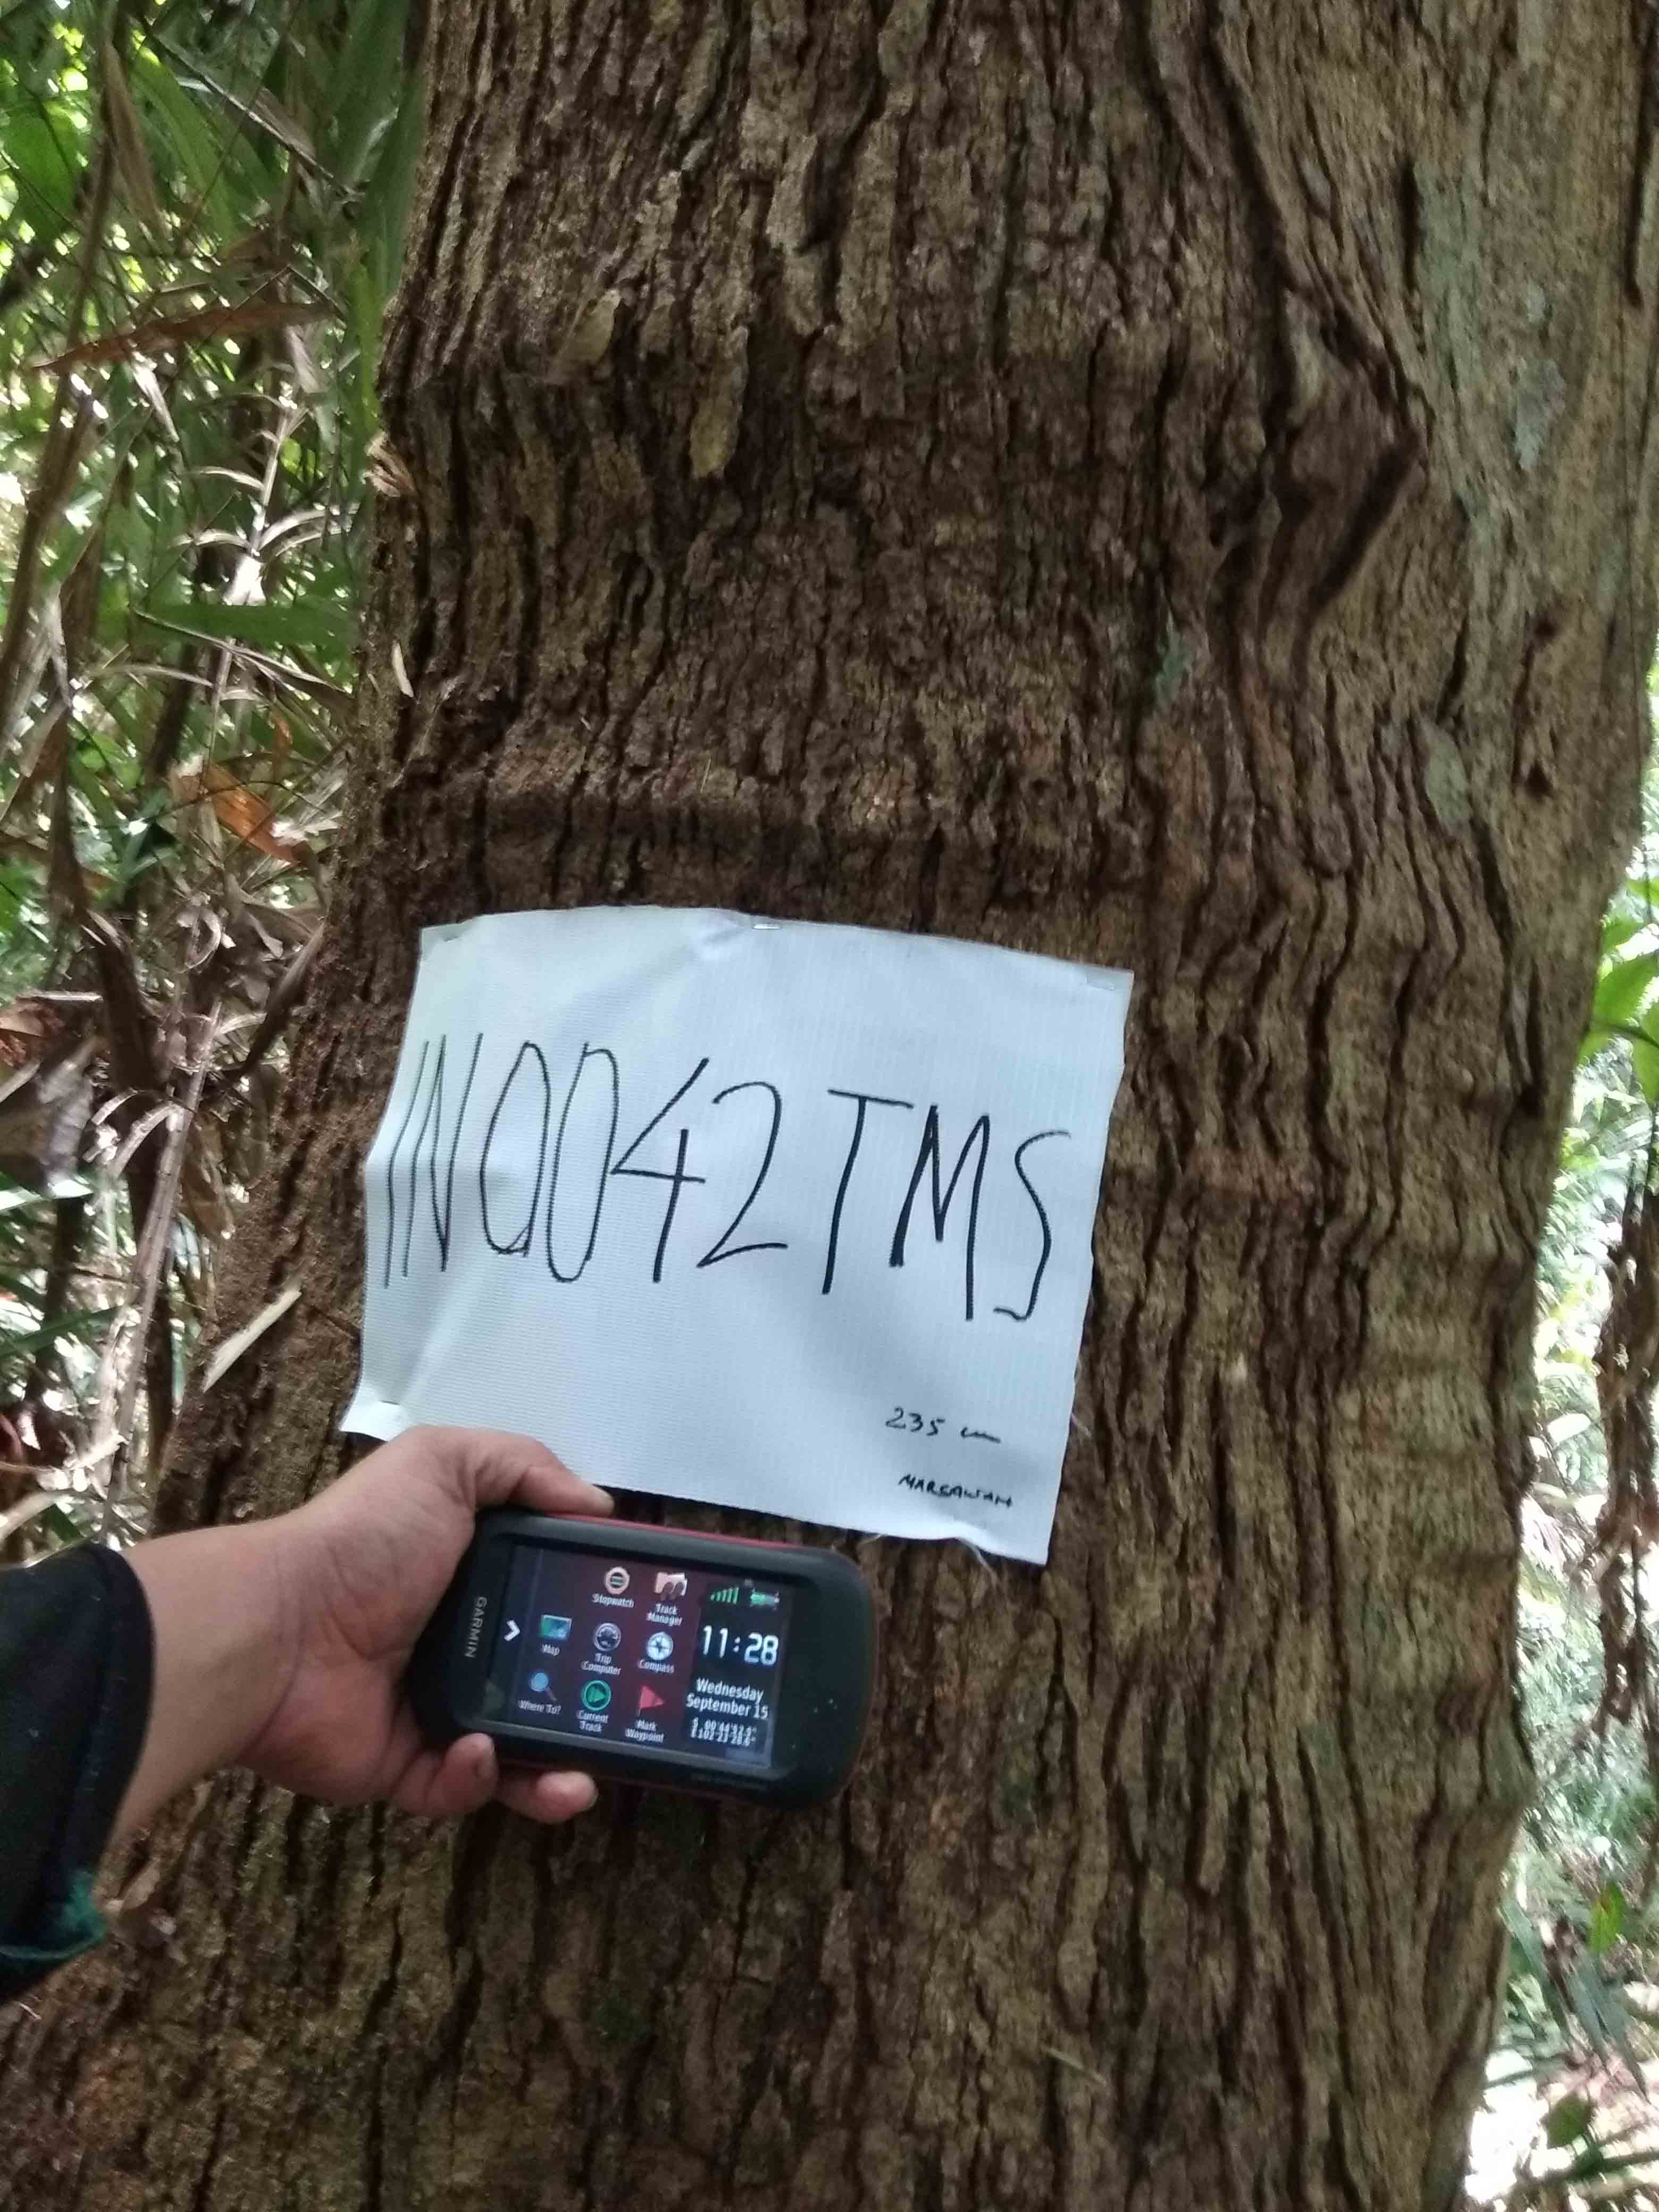 IN0042TMS
235 cm
MARSAWAH
GARMIN
Stopwatch
Track Manager
Map
Trip Computer
Compass
Where To?
Current Track
Mark Waypoint
11:28
Wednesday
September 15